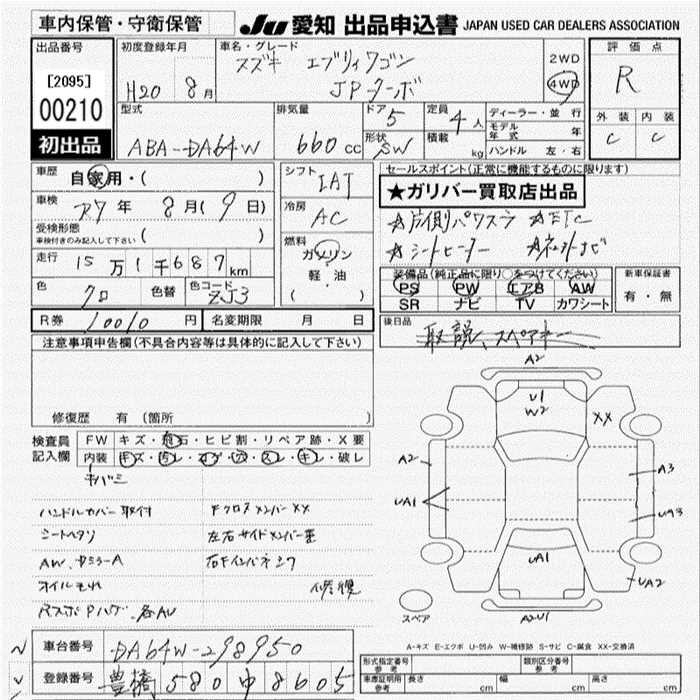 車内保管・守衛保管 JU 愛知 出品申込書 JAPAN USED CAR DEALERS ASSOCIATION
出品番号 初度登録年月 車名・グレード 評価点
[2095] H20 8月 スズキ エブリィワゴン 2WD
JPターボ 4WD R
00210 型式 排気量 ドア 5 定員 4人 ディーラー・並行 外装 内装
初出品 ABA-DA64W 660cc 形状 SW 積載 kg モデル年式 年 C C
ハンドル 左・右
車歴 自家用・( ) シフト IAT セールスポイント(正常に機能するものに限ります)
車検 R7年 8月(9日) ★ガリバー買取店出品
受検形態 ( ) 冷房 AC ☆片側パワスラ ☆ETC
車検付きのみ記入して下さい
走行 15万1千687km 燃料 ガソリン ☆シートヒーター
軽・油
( ・ )
色 クロ 色替 色コード ZJ3 装備品(純正品に限り○をつけてください) 新車保証書
PS PW エアB AW 有・無
SR ナビ TV カワシート
R券 10010円 名変期限 月 日 後日品
注意事項申告欄(不具合内容等は具体的に記入して下さい) 取説、スペアキー
修復歴 有(箇所
検査員記入欄 FW キズ・飛石・ヒビ割・リペア跡・X要
内装 キズ・汚レ・コゲ・穴・スレ・キレ・破レ
キバミ
ハンドルカバー取付 Fクロスメンバー XX
シートヘタリ 左右サイドメンバー歪
AW、カミラーA 右Fインパネシワ
オイルモレ 修復
A2
U1
W2
XX
A2 A3
UA1 UA3
UA1 UA2
A2U1
スペア
A-キズ E-エクボ U-凹み W-補修跡 S-サビ C-腐食 XX-交換済
車台番号 DA64W-298950
登録番号 豊橋 580 ゆ 8605
形式指定番号 参考 類別区分番号 参考
車庫証明用 参考 長さ cm 幅 cm 高さ cm